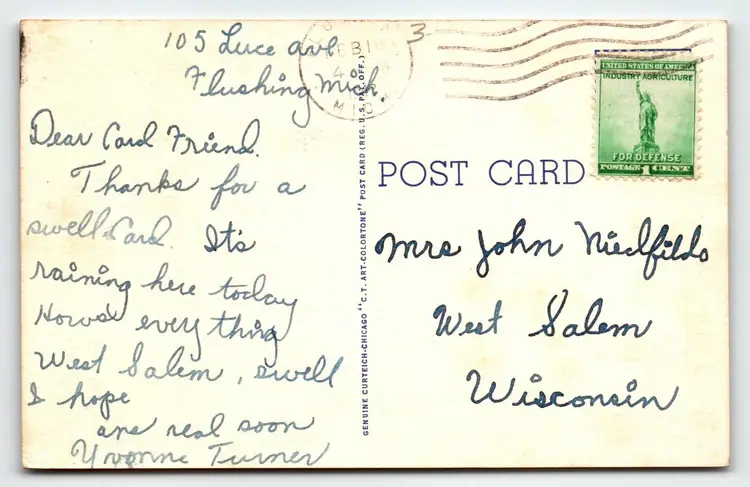 105 Luce ave
Flushing Mich.
Dear Card Friend.
Thanks for a
swell Card. It's
raining here today
How's every thing
West Salem, swell
I hope
ans real soon
Yvonne Turner
FEB 1
MICH
3
GENUINE CURTEICH-CHICAGO "C. T. ART-COLORTONE" POST CARD (REG. U. S. PAT. OFF.)
POST CARD
UNITED STATES OF AMERICA
INDUSTRY AGRICULTURE
FOR DEFENSE
POSTAGE 1 CENT
Mrs John Niedfildo
West Salem
Wisconsin